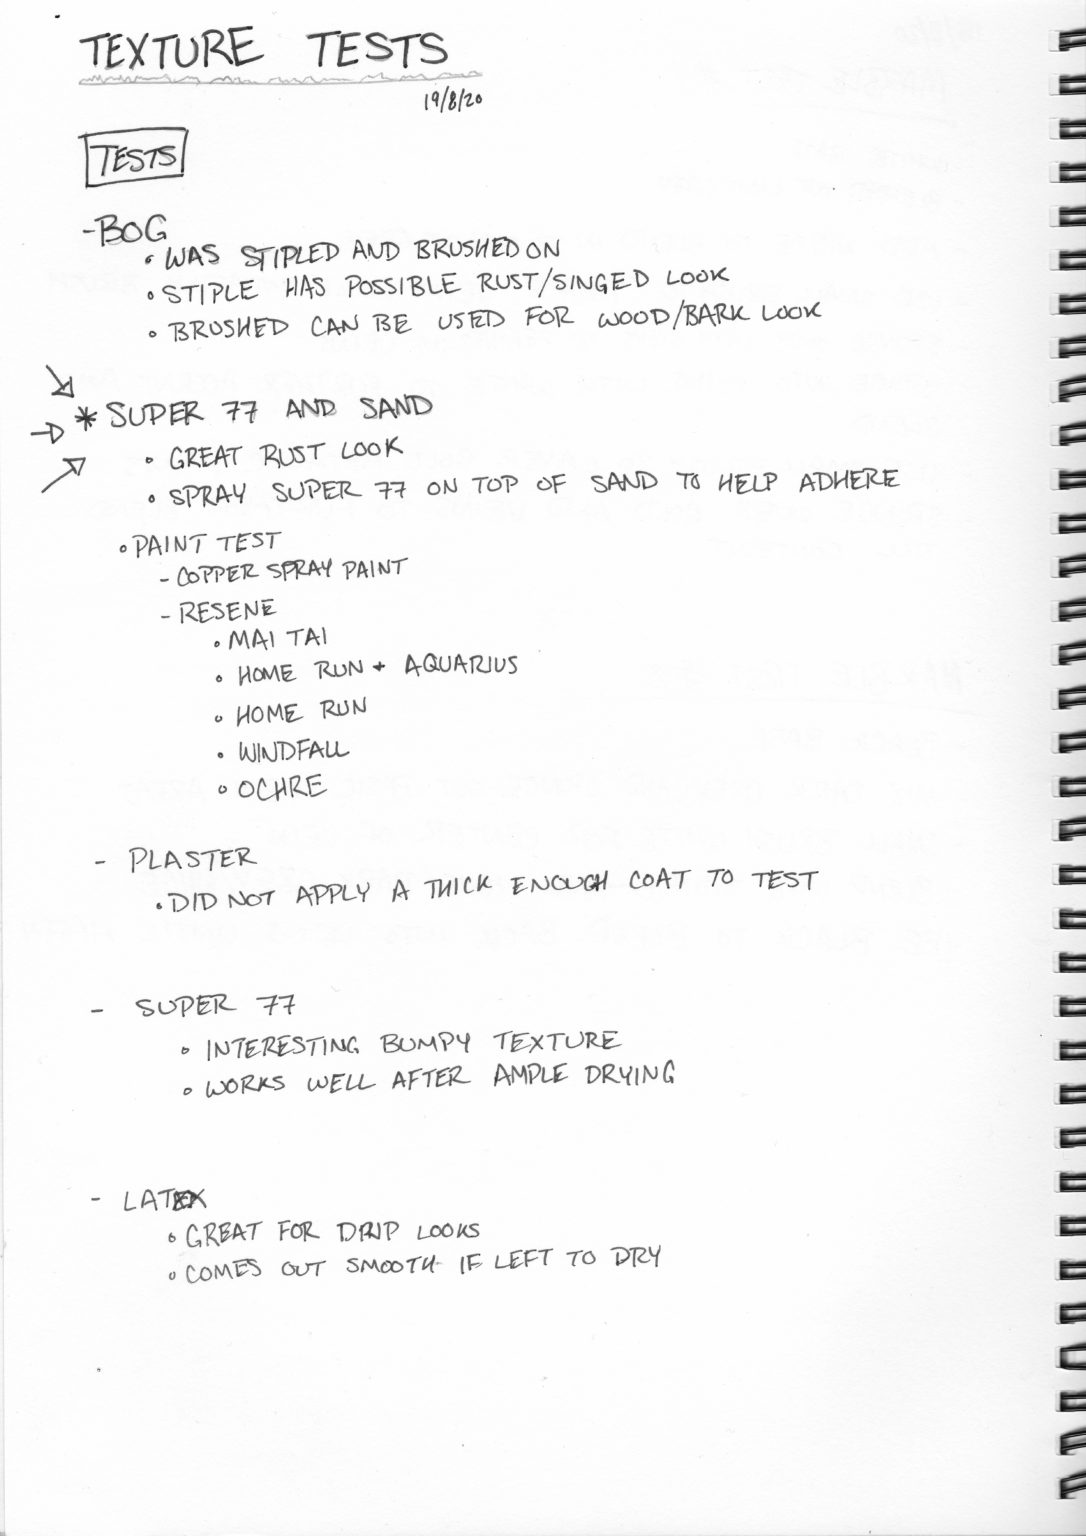 TEXTURE TESTS
19/8/20
TESTS
-BOG
• WAS STIPLED AND BRUSHED ON
• STIPLE HAS POSSIBLE RUST/SINGED LOOK
• BRUSHED CAN BE USED FOR WOOD/BARK LOOK
* SUPER 77 AND SAND
• GREAT RUST LOOK
• SPRAY SUPER 77 ON TOP OF SAND TO HELP ADHERE
• PAINT TEST
- COPPER SPRAY PAINT
- RESENE
• MAI TAI
• HOME RUN + AQUARIUS
• HOME RUN
• WINDFALL
• OCHRE
- PLASTER
• DID NOT APPLY A THICK ENOUGH COAT TO TEST
- SUPER 77
• INTERESTING BUMPY TEXTURE
• WORKS WELL AFTER AMPLE DRYING
- LATEX
• GREAT FOR DRIP LOOKS
• COMES OUT SMOOTH IF LEFT TO DRY